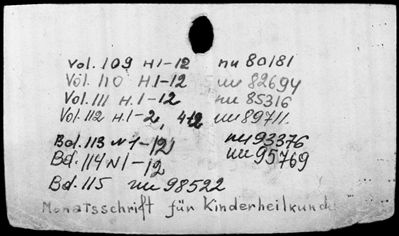 Vol. 109 H 1-12 nu 80181
Vol. 110 H.1-12 nu 82694
Vol. 111 H.1-12 nu 85316
Vol. 112 H.1-2, 4-12 nu 89711.
Bd. 113 N 1-12 nu 93376
Bd. 114 N 1-12 nu 95769
Bd. 115 nu 98522
Monatsschrift für Kinderheilkunde